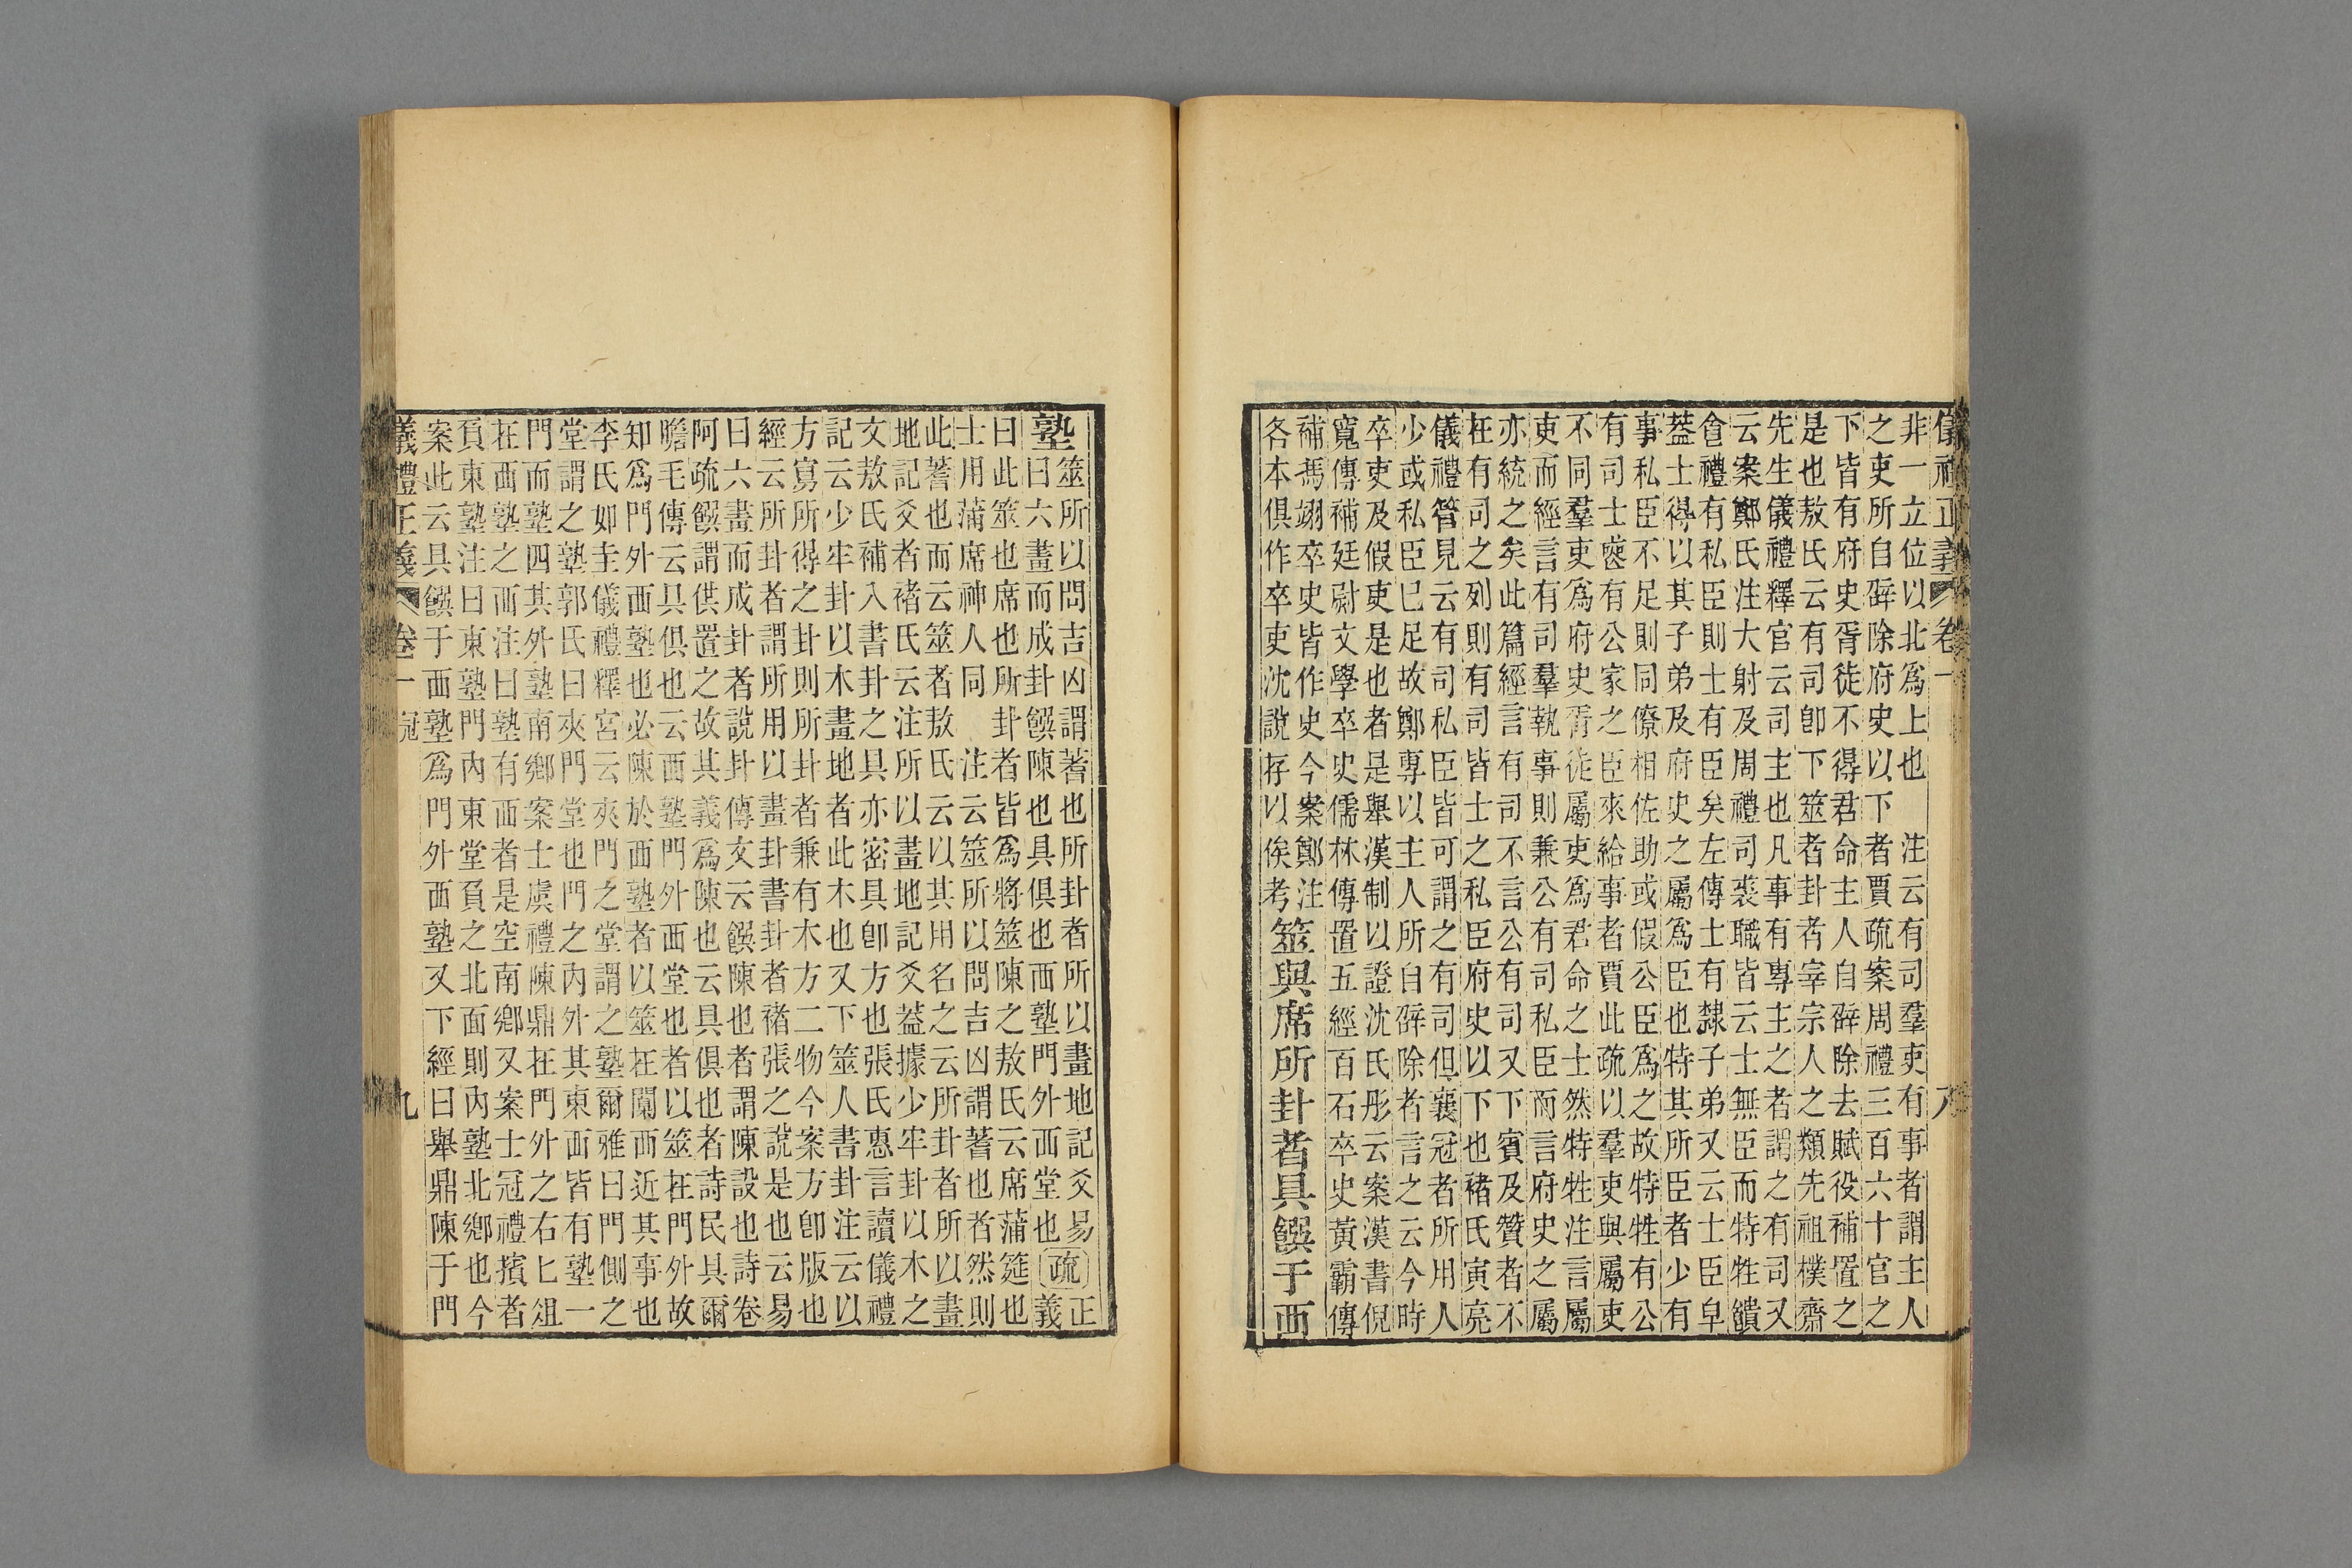 儀禮正義 卷一 八
非一立位以北為上也 注云有司羣吏有事者謂主人
之吏所自辟除府史以下 者賈疏案周禮三百六十官之
下皆有府史胥徒不得君命主人自辟除去賦役補置之
是也敖氏云有司即下筮者卦者宰宗人之類先祖樸齋
先生儀禮釋官云司主也凡事有專主之者謂之有司又
云案鄭氏注大射及周禮司裘職皆云士無臣而特牲饋
食禮有私臣則士有臣矣左傳士有隸子弟又云士臣皁
蓋士得以其子弟及府史之屬為臣也特其所臣者少有
事私臣不足則同僚相佐助或假公臣為之故特牲有公
有司士有公家之臣來給事者賈此疏以羣吏與屬吏
不同羣吏為府史胥徒屬吏為君命之士然特牲注言屬
吏而經言有司羣執事則兼公有司私臣而言府史之屬
亦統之矣此篇經言有司不言公有司又下賓及贊者不
在有司之列則有司皆士之私臣府史以下也褚氏寅亮
儀禮管見云有司私臣皆可謂之有司但襄冠者所用人
少或私臣已足故鄭專以主人所自辟除者言之云今時
卒吏及假吏是也者是舉漢制以證沈氏彤云案漢書倪
寬傳補廷尉文學卒史儒林傳置五經百石卒史黃霸傳
補馮翊卒史皆作史今案鄭注
各本俱作卒吏沈說存以俟考
筮與席所卦者具饌于西
塾
筮所以問吉凶謂蓍也所卦者所以畫地記爻易
曰六畫而成卦饌陳也具俱也西塾門外西堂也
疏
正義
曰此筮也席也所卦者皆為將筮陳之敖氏云席蒲筵也
士用蒲席神人同 注云筮所以問吉凶謂蓍也者然則
此蓍也而云筮者敖氏云以其用名之云所卦者所以畫
地記爻者褚氏云注所以畫地記爻蓋據少牢卦以木之
文敖氏補入書卦之具亦密具即方也張氏惠言讀儀禮
記云少牢卦以木畫地者此木也又下筮人書卦注云以
方寫所得之卦則所卦者兼有木方二物今案方即版也
經云所卦者謂所用以畫卦書卦者褚張之說是也云易
曰六畫而成卦者說卦傳文云饌陳也者謂陳設也詩卷
阿疏饌謂供置之故其義為陳也云具俱也者詩民具爾
瞻毛傳云具俱也云西塾門外西堂也者以筮在門外故
知為門外西塾也必陳於西塾者以筮在闑西近其事也
李氏如圭儀禮釋宮云夾門之堂謂之塾爾雅曰門側之
堂謂之塾郭氏曰夾門堂也門之內外其東西皆有塾一
門而塾四其外塾南鄉案士虞禮陳鼎在門外之右匕俎
在西塾之西注曰塾有西者是空南鄉又案士冠禮擯者
負東塾注曰東塾門內東堂負之北面則內塾北鄉也今
案此云具饌于西塾為門外西塾又下經曰舉鼎陳于門
儀禮正義 卷一 冠 九